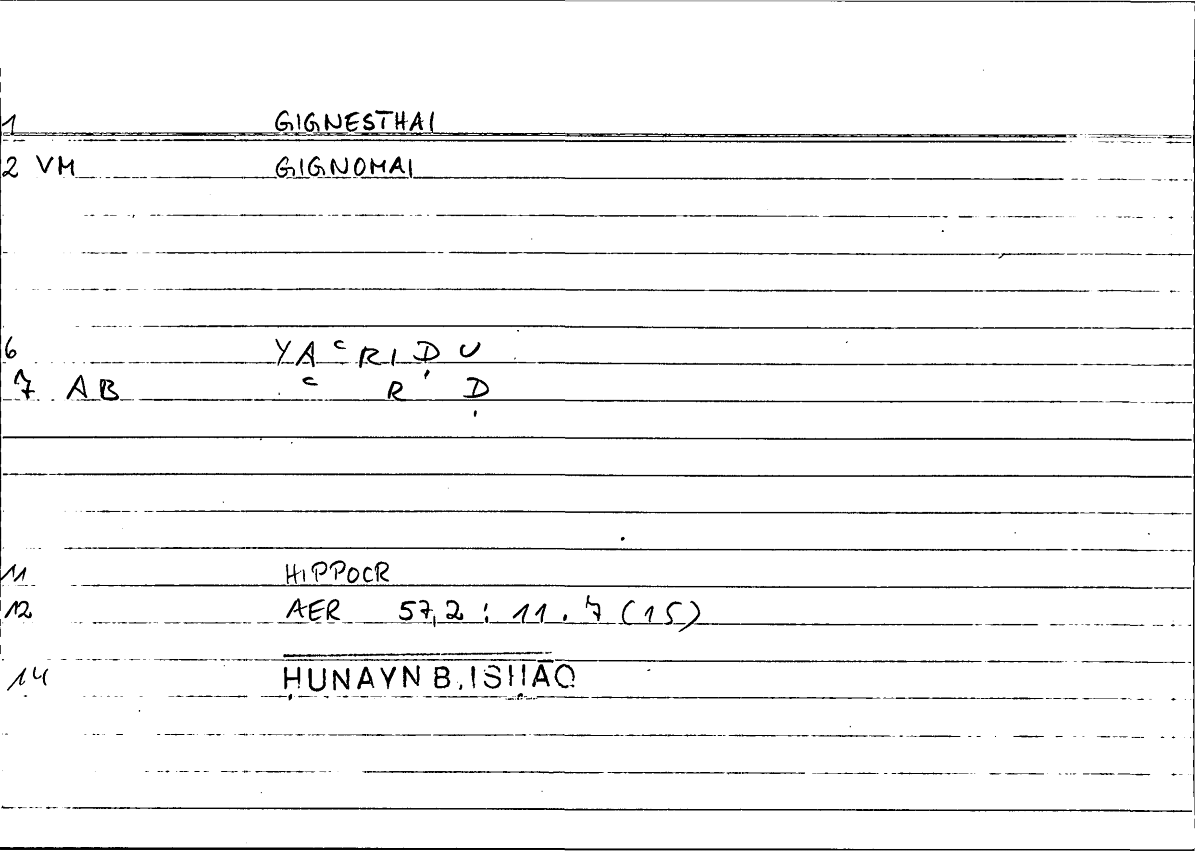 1 GIGNESTHAI
2 VM GIGNOMAI
6 YAʿRIḌU
7 AB ʿ R Ḍ
11 HIPPOCR
12 AER 57,2 : 11.7 (15)
14 ḤUNAYN B. ISḤĀQ